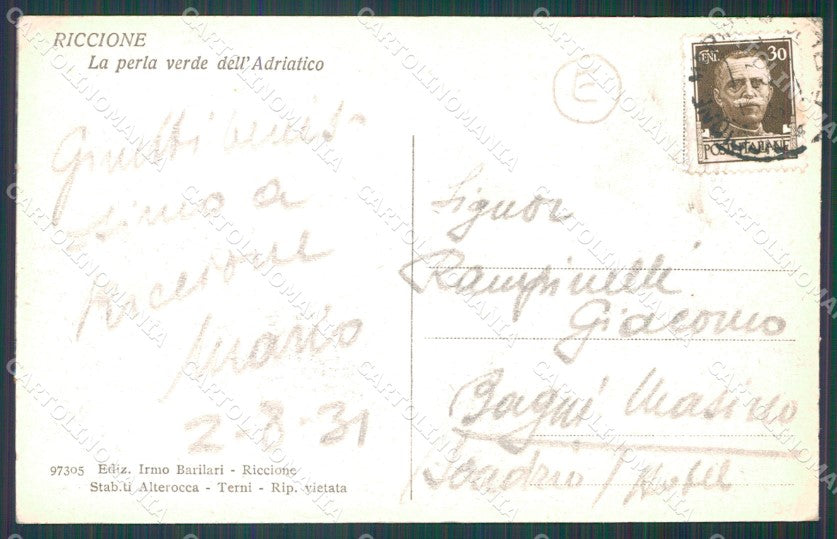 RICCIONE
La perla verde dell'Adriatico
Giunti benis-
simo a
Riccione
Mario
2-8-31
97305 Ediz. Irmo Barilari - Riccione
Stab.ti Alterocca - Terni - Rip. vietata
E
30
POSTE ITALIANE
Signor
Rampinelli
Giacomo
Bagni Masino
Sondrio / Hotel
CARTOLINOMANIA